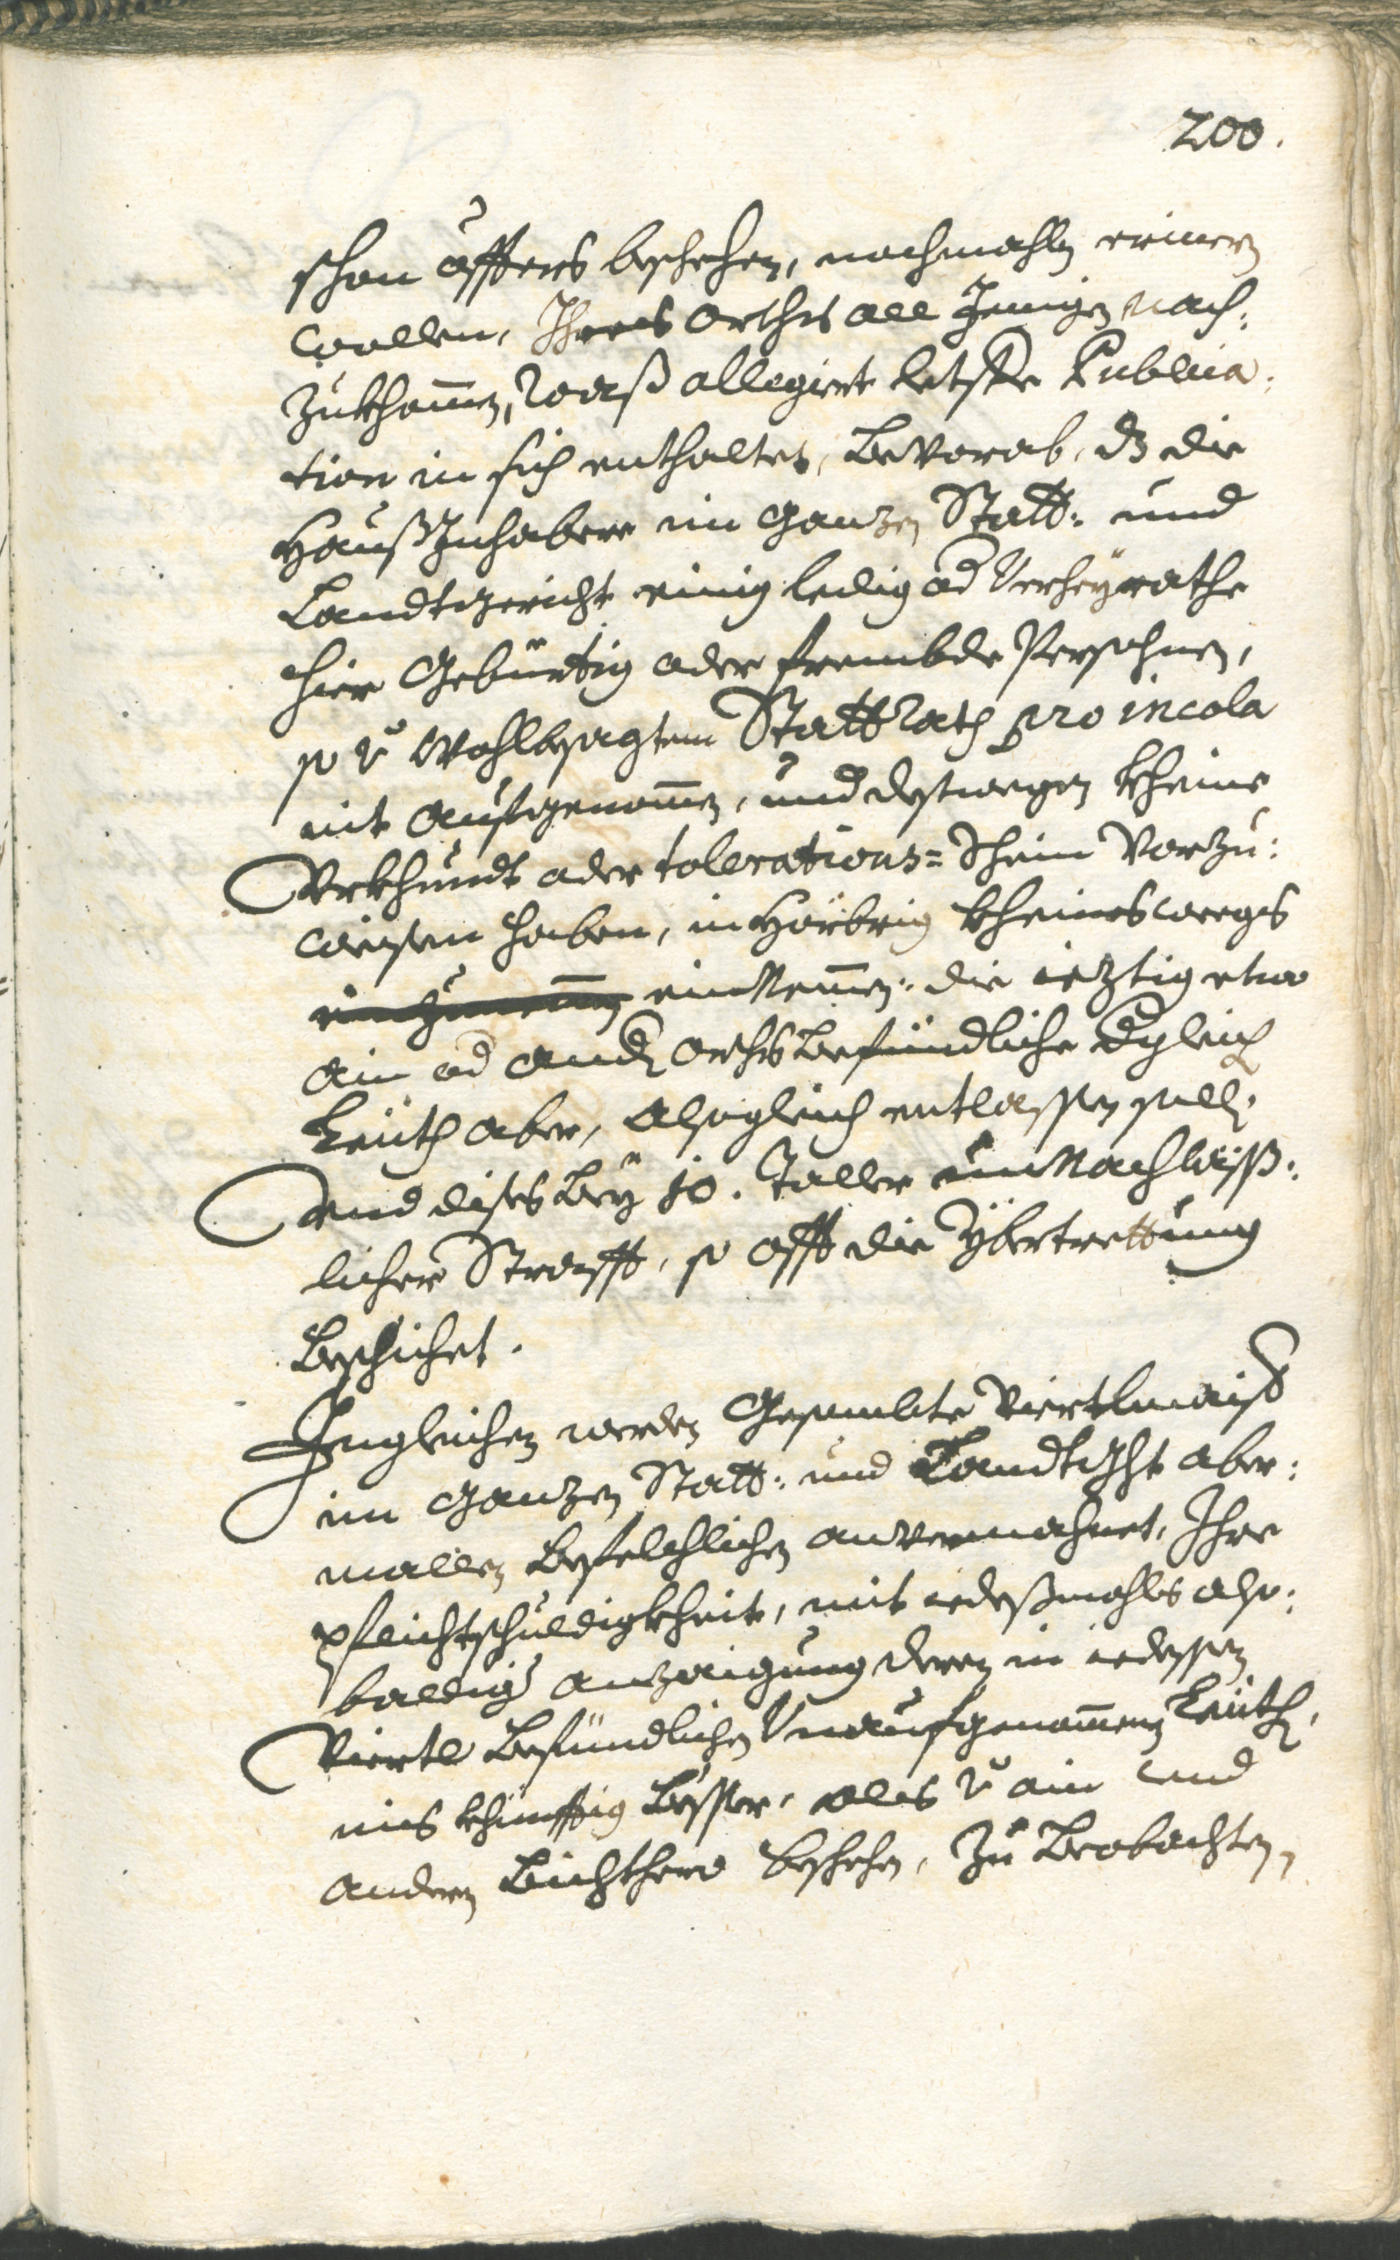 200.
schon öffters beschehen, nochmahls erinern
wollen, Ihres Orths all Jenigen nach:
zukhomen, waß allegiert letste Publica:
tion in sich enthaltet, bevorab, dz die
Haußinhabere im ganzen Statt: und
Landtgericht einig ledig od Verheyrathe
hier Gebürtig oder frembde Persohnen,
so v wohlbesagtem Stattrath pro incola
nit aufgenomen, und destwegen kheine
Urkhundt oder tolerations= schein vorzu:
weisen haben, in Hörbrig kheinesweegs
einzunemen einNemen: die ieztig etwo
ain od andn orths befündliche dgleich
Leüth aber, alsogleich entlassen solln.
Und dises bey 10. Taller unNachläss:
licher Straff, so offt die Ybertrettung
beschichet.
Ingleichen werden Gesambte Viertlmaistr
im ganzen Statt: und Landtgcht aber:
mallen befelchlichen anvermahnet, Ihre
pflichtschuldigkheit, mit iedeßmahls also:
baldigr anzaigung deren in iedessen
Viertl befündlichen Unaufgenomenen Leüth,
ins khünfftig besser, als v ain und
andern bishero beschehen, zu beobachten,